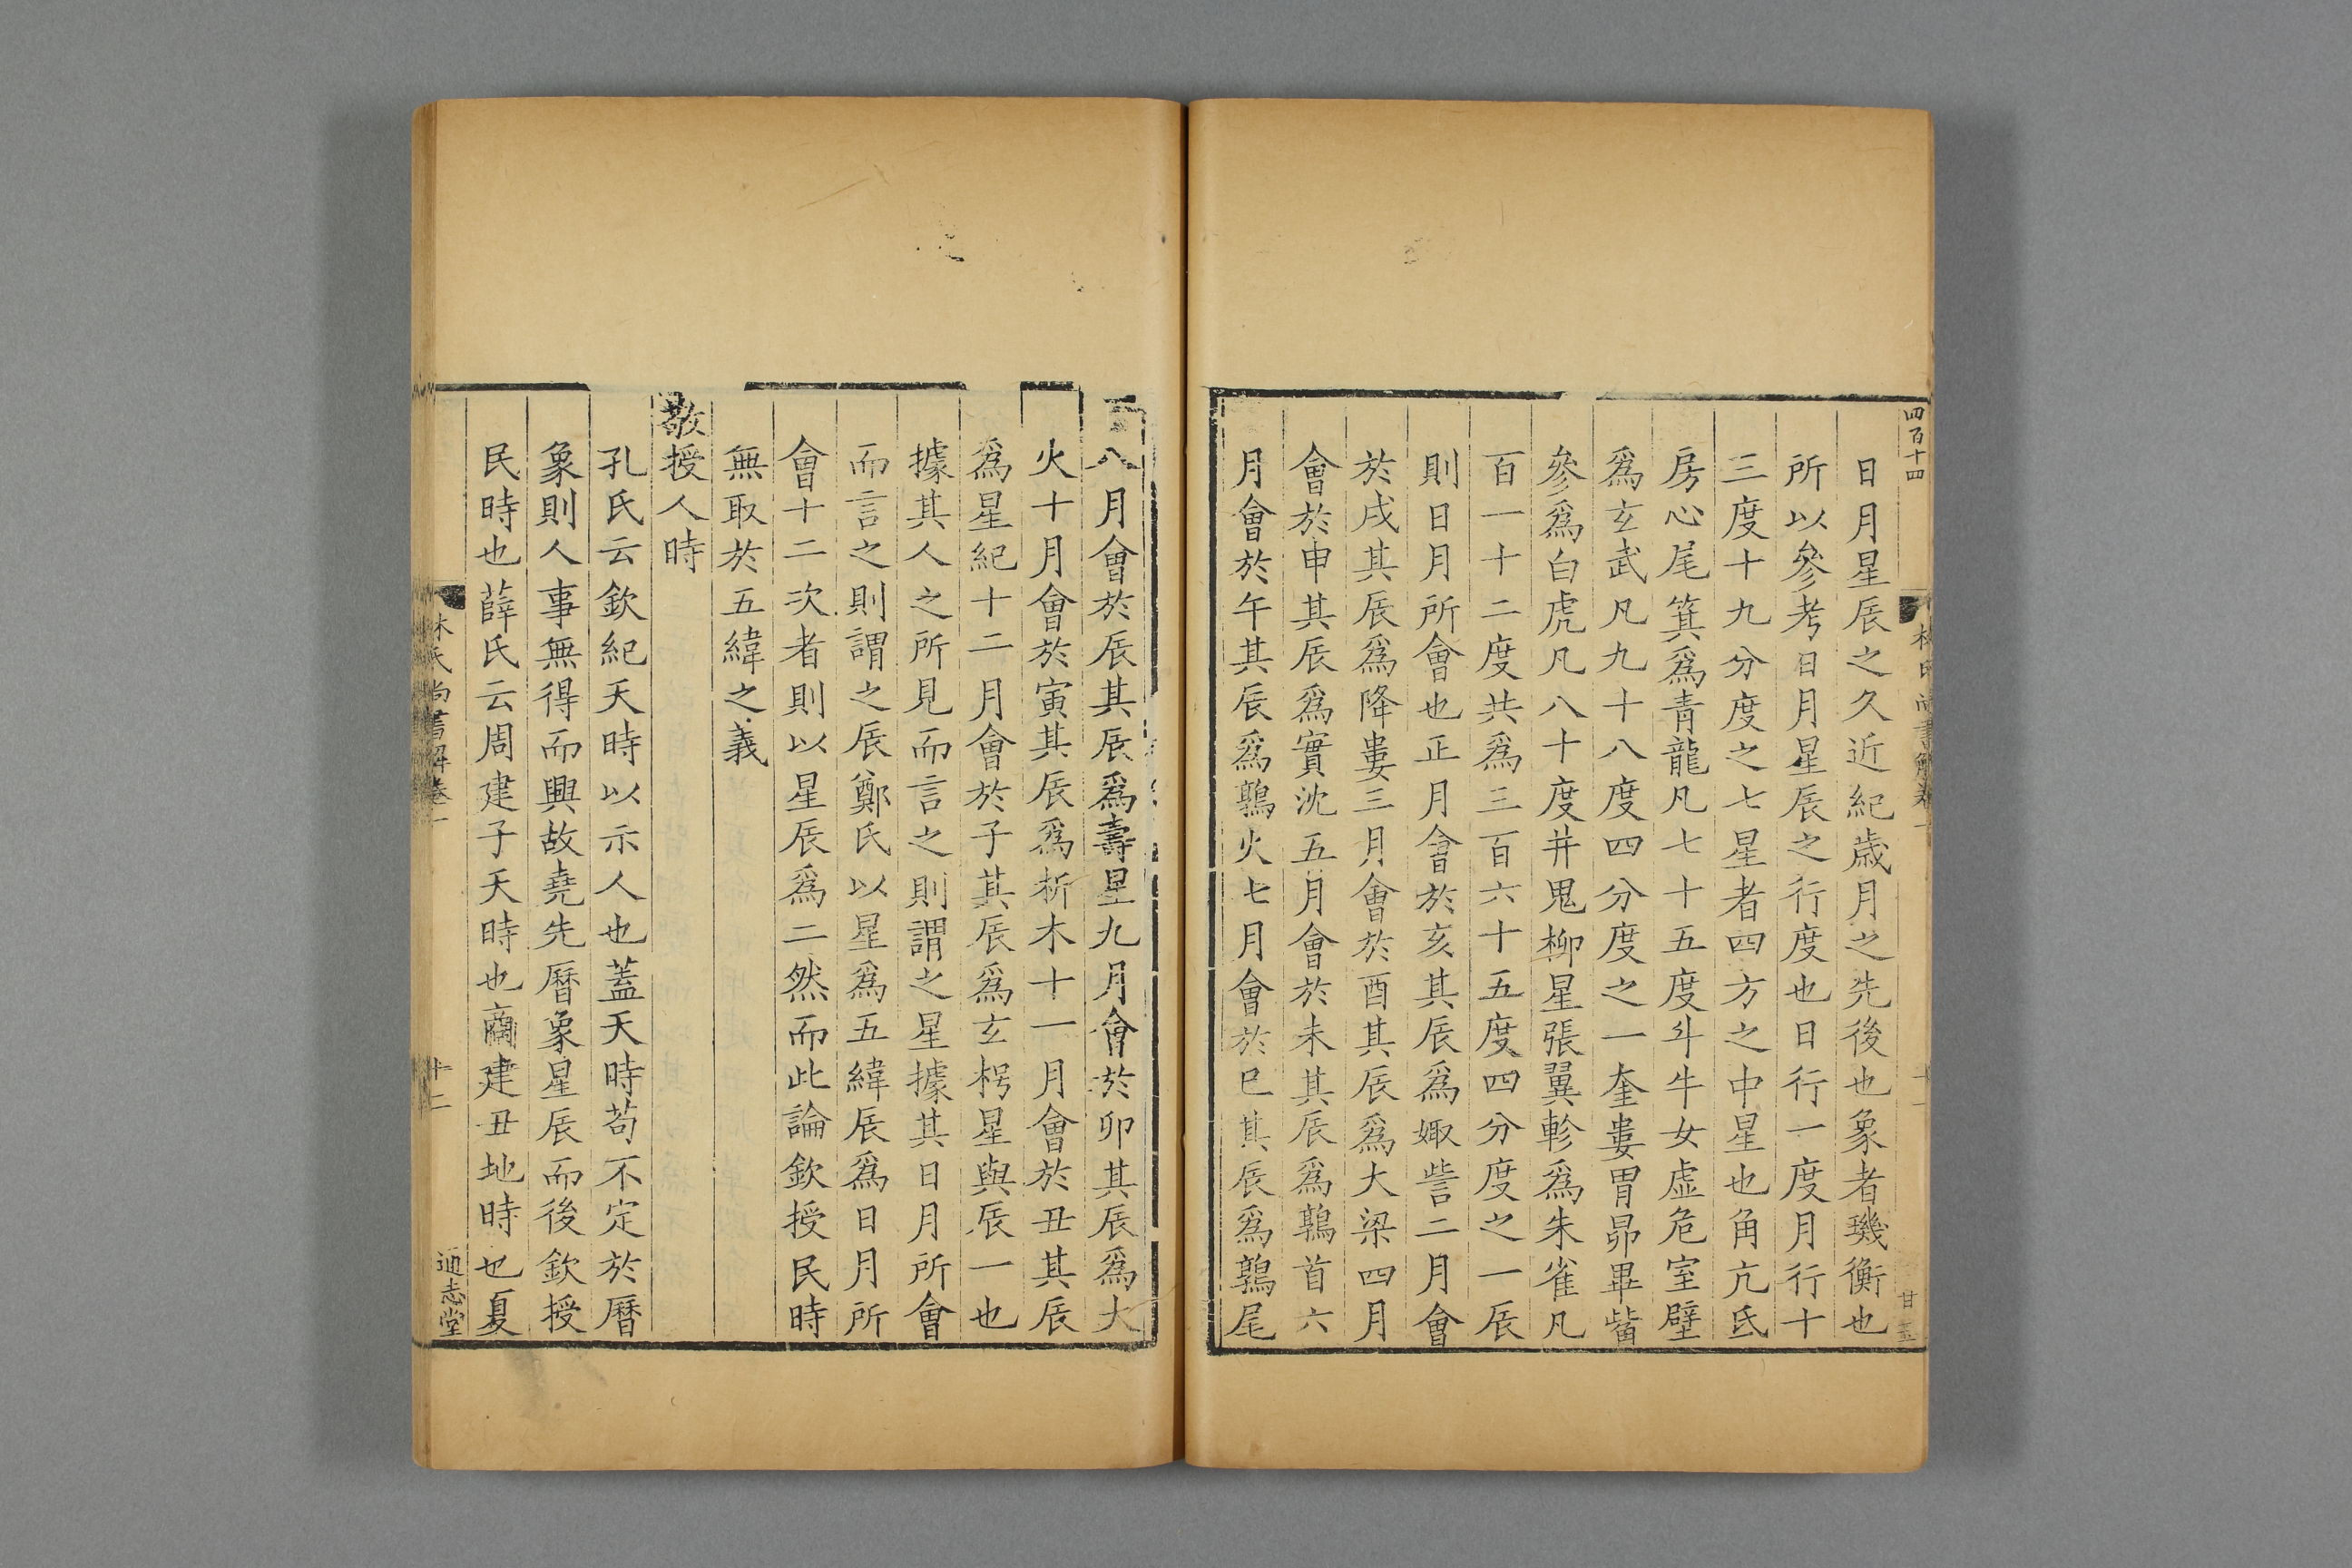 四百十四
日月星辰之久近紀歲月之先後也象者璣衡也
所以參考日月星辰之行度也日行一度月行十
三度十九分度之七星者四方之中星也角亢氐
房心尾箕爲青龍凡七十五度斗牛女虛危室壁
爲玄武凡九十八度四分度之一奎婁胃昴畢觜
參爲白虎凡八十度井鬼柳星張翼軫爲朱雀凡
百一十二度共爲三百六十五度四分度之一辰
則日月所會也正月會於亥其辰爲娵訾二月會
於戌其辰爲降婁三月會於酉其辰爲大梁四月
會於申其辰爲實沈五月會於未其辰爲鶉首六
月會於午其辰爲鶉火七月會於巳其辰爲鶉尾
八月會於辰其辰爲壽星九月會於卯其辰爲大
火十月會於寅其辰爲析木十一月會於丑其辰
爲星紀十二月會於子其辰爲玄枵星與辰一也
據其人之所見而言之則謂之星據其日月所會
而言之則謂之辰鄭氏以星爲五緯辰爲日月所
會十二次者則以星辰爲二然而此論欽授民時
無取於五緯之義
敬授人時
孔氏云欽紀天時以示人也蓋天時苟不定於曆
象則人事無得而興故堯先曆象星辰而後欽授
民時也薛氏云周建子天時也商建丑地時也夏
林氏尚書解卷一
十二
通志堂